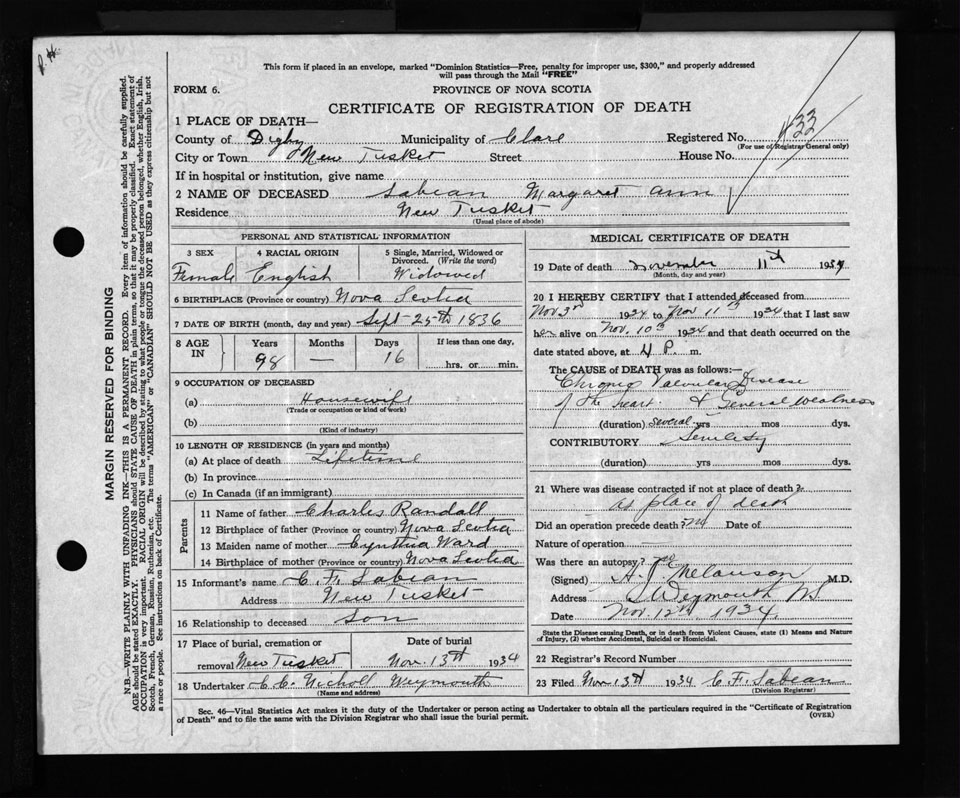 P. H.
This form if placed in an envelope, marked "Dominion Statistics—Free, penalty for improper use, $300," and properly addressed
will pass through the Mail "FREE"
FORM 6.
PROVINCE OF NOVA SCOTIA
CERTIFICATE OF REGISTRATION OF DEATH
1 PLACE OF DEATH—
County of Digby Municipality of Clare Registered No. 433
(For use of Registrar General only)
City or Town New Tusket Street House No.
If in hospital or institution, give name
2 NAME OF DECEASED Sabean Margaret Ann
Residence New Tusket
(Usual place of abode)
PERSONAL AND STATISTICAL INFORMATION
3 SEX 4 RACIAL ORIGIN 5 Single, Married, Widowed or Divorced. (Write the word)
Female English Widowed
6 BIRTHPLACE (Province or country) Nova Scotia
7 DATE OF BIRTH (month, day and year) Sept 25th 1836
8 AGE IN Years Months Days If less than one day,
98 — 16 hrs. or min.
9 OCCUPATION OF DECEASED
(a) Housewife
(Trade or occupation or kind of work)
(b)
(Kind of industry)
10 LENGTH OF RESIDENCE (in years and months)
(a) At place of death Lifetime
(b) In province
(c) In Canada (if an immigrant)
Parents
11 Name of father Charles Randall
12 Birthplace of father (Province or country) Nova Scotia
13 Maiden name of mother Cynthia Ward
14 Birthplace of mother (Province or country) Nova Scotia
15 Informant's name C. F. Sabean
Address New Tusket
16 Relationship to deceased Son
17 Place of burial, cremation or removal New Tusket Date of burial Nov. 13th 1934
18 Undertaker C. C. Nicholl Weymouth
(Name and address)
MEDICAL CERTIFICATE OF DEATH
19 Date of death November 11th 1934
(Month, day and year)
20 I HEREBY CERTIFY that I attended deceased from
Nov 3rd 1934 to Nov 11th 1934 that I last saw
her alive on Nov. 10th 1934 and that death occurred on
date stated above, at 4 P. m.
The CAUSE of DEATH was as follows:—
Chronic Valvular Disease
of the heart. & General Weakness
(duration) several yrs mos dys.
CONTRIBUTORY Senility
(duration) yrs mos dys.
21 Where was disease contracted if not at place of death?
at place of death
Did an operation precede death? no Date of
Nature of operation
Was there an autopsy? no
(Signed) H. J. Melanson M.D.
Address Weymouth NS
Date Nov. 12th 1934.
State the Disease causing Death, or in death from Violent Causes, state (1) Means and Nature
of Injury, (2) whether Accidental, Suicidal or Homicidal.
22 Registrar's Record Number
23 Filed Nov. 13th 1934 C. F. Sabean
(Division Registrar)
Sec. 46—Vital Statistics Act makes it the duty of the Undertaker or person acting as Undertaker to obtain all the particulars required in the "Certificate of Registration
of Death" and to file the same with the Division Registrar who shall issue the burial permit.
(OVER)
MARGIN RESERVED FOR BINDING
N.B.—WRITE PLAINLY WITH UNFADING INK—THIS IS A PERMANENT RECORD. Every item of information should be carefully supplied.
AGE should be stated EXACTLY. PHYSICIANS should STATE CAUSE OF DEATH in plain terms, so that it may be properly classified. Exact statement of
OCCUPATION is very important. RACIAL ORIGIN will be described by stating to what people or tongue the deceased person belonged, whether English, Irish,
Scotch, French, German, Russian, Ruthenian, etc. The terms "AMERICAN" or "CANADIAN" SHOULD NOT BE USED as they express citizenship but not
a race or people. See instructions on back of Certificate.